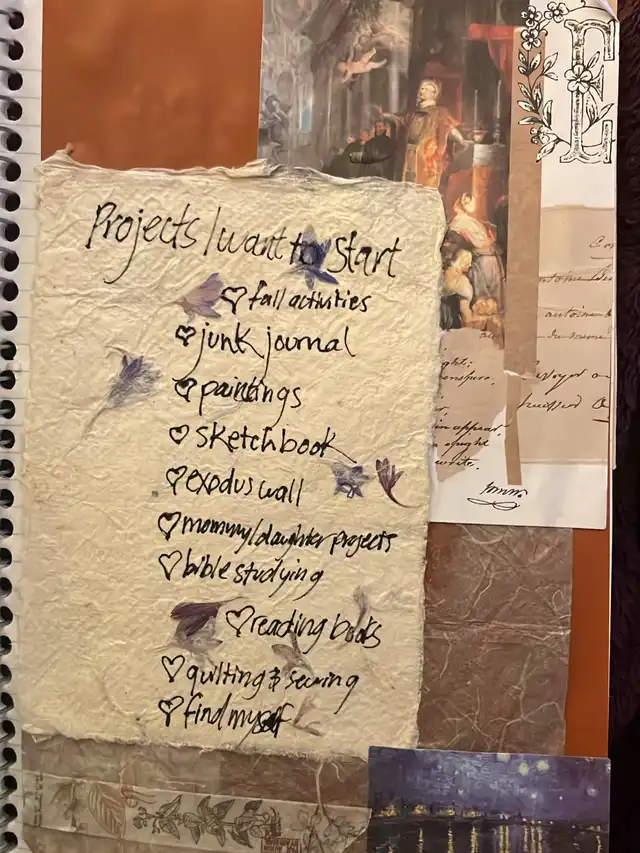 Projects I want to Start
♡ fall activities
♡ junk journal
♡ paintings
♡ sketchbook
♡ exodus wall
♡ mommy/daughter projects
♡ bible studying
♡ reading books
♡ quilting & sewing
♡ find myself
E
write.